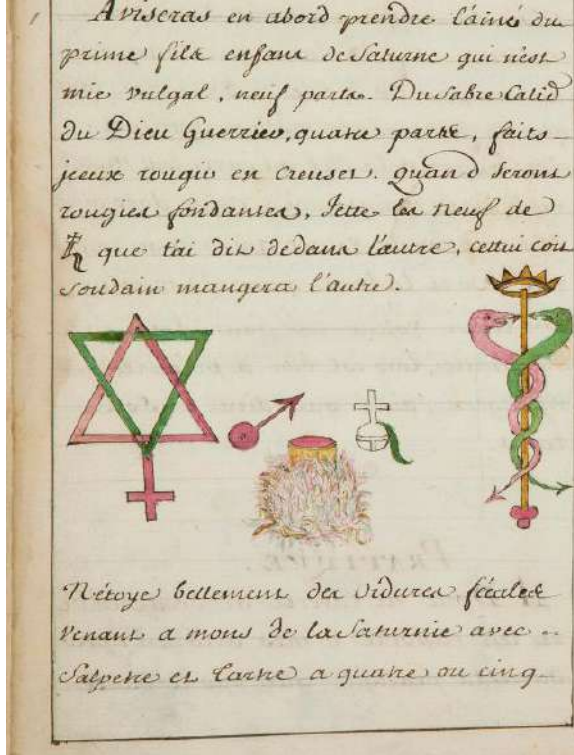 Aviseras en abord prendre l'ainé du
prime fils enfant de Saturne qui n'est
mie vulgal, neuf parts. Du Sabre Calid
du Dieu Guerrier, quatre parts, faits
jceux rougir en Creuset. quand seront
rougies fondantes, Jette les neuf de
♄ que t'ai dit dedans l'autre, cettui coit
soudain mangera l'autre.
Nétoye bellement des vidures fécales
venant a mons de la Saturnie avec
Salpetre et tartre a quatre ou cinq